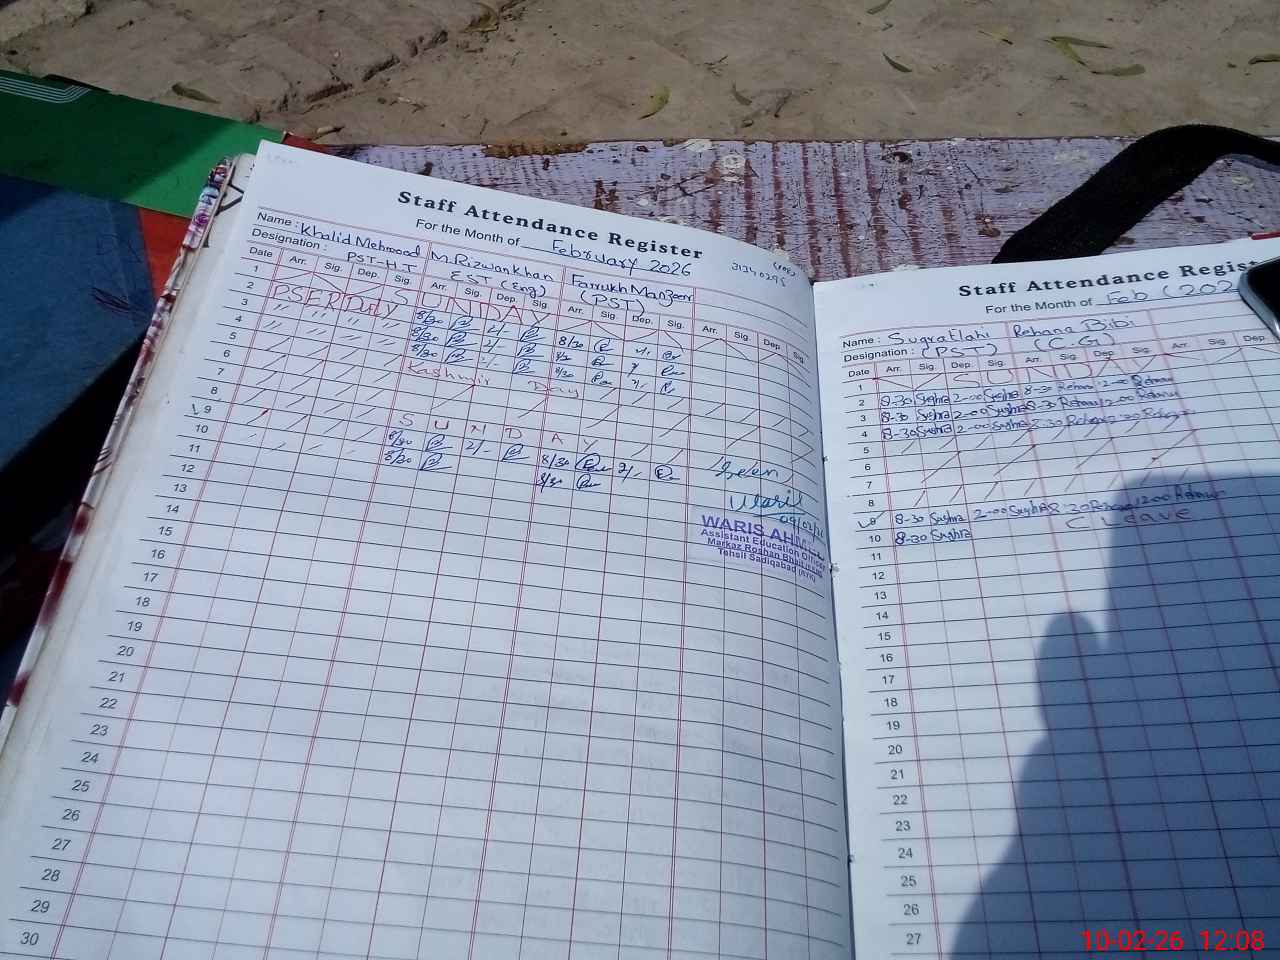 Staff Attendance Register
For the Month of February 2026
31340295
Name : Khalid Mehmood M. Rizwan Khan Farrukh Manzoor
Designation : PST-HT EST (Eng) (PST)
Date Arr. Sig. Dep. Sig. Arr. Sig. Dep. Sig. Arr. Sig. Dep. Sig. Arr. Sig. Dep. Sig.
1 SUNDAY
2 PSER Duty 8/30 2/- 8/30 2/-
3 " " " " 8/30 2/- 8/30 2/-
4 " " " " 8/30 2/- 8/30 2/-
5 Kashmir Day
6
7
8 S U N D A Y
9 8/30 2/- 8/30 2/-
10 8/30 8/30
11
12
13
14
15
16
17
18
19
20
21
22
23
24
25
26
27
28
29
30
Seen
09/02/26
WARIS AHMED
Assistant Education Officer
Markaz Roshan
Tehsil Sadiqabad
Staff Attendance Regist
For the Month of Feb (202
Name : Sugratlahi Rehana Bibi
Designation : (PST) (C.G)
Date Arr. Sig. Dep. Sig. Arr. Sig. Dep. Sig. Arr. Sig. Dep.
1 SUNDA
2 8-30 Sughra 2-00 Sughra 8-30 Rehana 2-00 Rehana
3 8-30 Sughra 2-00 Sughra 8-30 Rehana 2-00 Rehana
4 8-30 Sughra 2-00 Sughra 8-30 Rehana 2-30 Rehana
5
6
7
8
9 8-30 Sughra 2-00 Sughra 8-30 Rehana 12-00 Rehana
10 8-30 Sughra C Leave
11
12
13
14
15
16
17
18
19
20
21
22
23
24
25
26
27
10-02-26 12:08